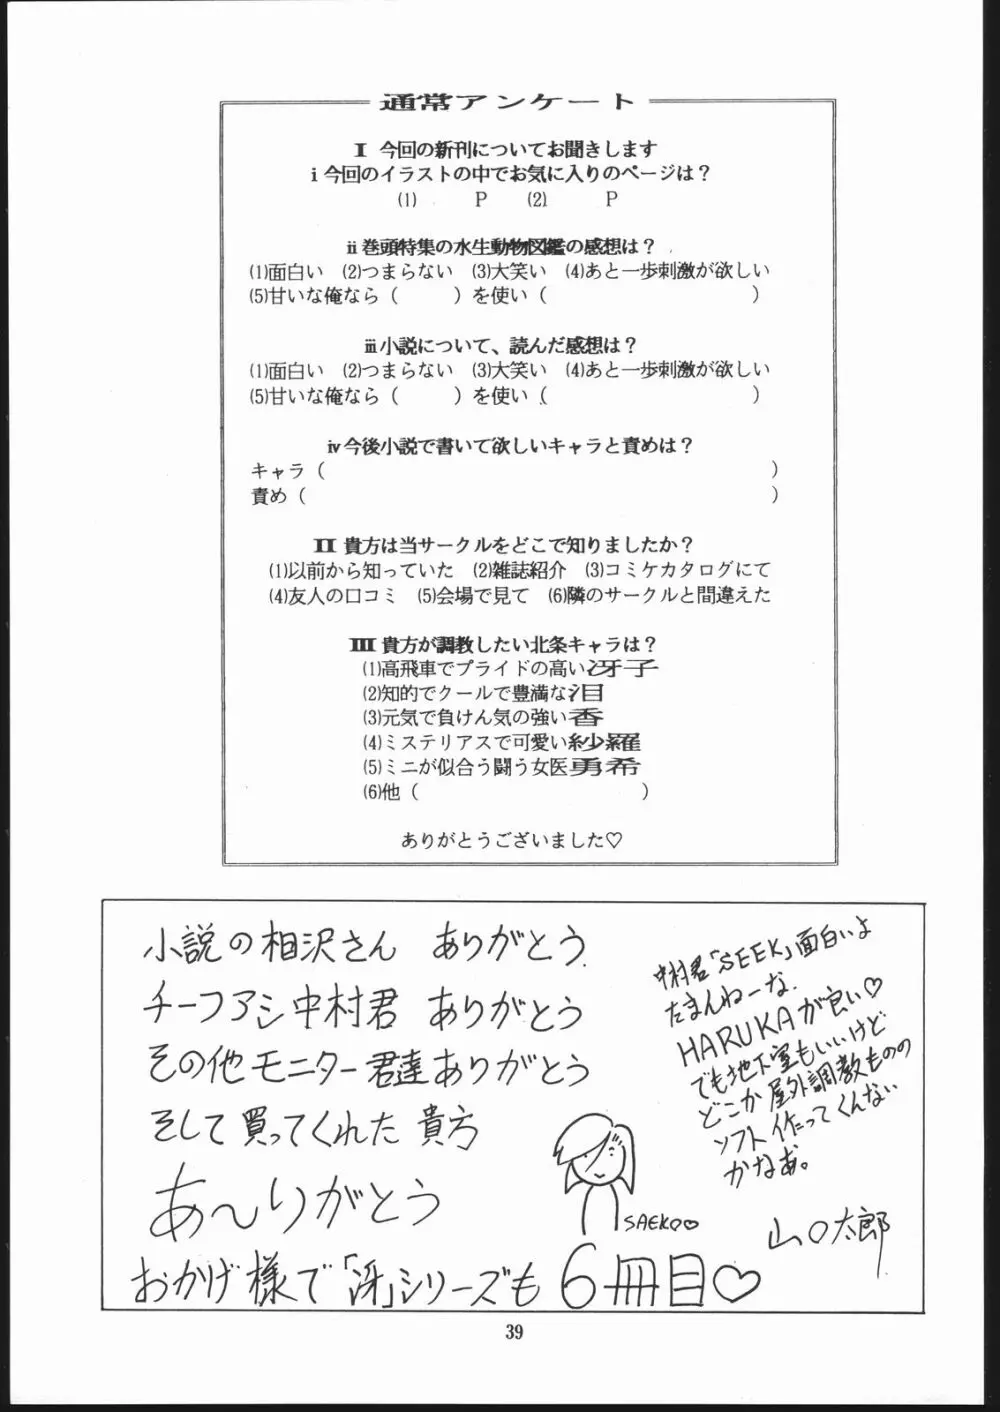 通常アンケート
Ⅰ 今回の新刊についてお聞きします
ⅰ今回のイラストの中でお気に入りのページは？
(1)　　　P　(2)　　　P
ⅱ巻頭特集の水生動物図鑑の感想は？
(1)面白い　(2)つまらない　(3)大笑い　(4)あと一歩刺激が欲しい
(5)甘いな俺なら（　　　）を使い（　　　　　　　　　　　）
ⅲ小説について、読んだ感想は？
(1)面白い　(2)つまらない　(3)大笑い　(4)あと一歩刺激が欲しい
(5)甘いな俺なら（　　　）を使い（　　　　　　　　　　　）
ⅳ今後小説で書いて欲しいキャラと責めは？
キャラ（　　　　　　　　　　　　　　　　　　　　　　　　）
責め（　　　　　　　　　　　　　　　　　　　　　　　　　）
ⅠⅠ 貴方は当サークルをどこで知りましたか？
(1)以前から知っていた　(2)雑誌紹介　(3)コミケカタログにて
(4)友人の口コミ　(5)会場で見て　(6)隣のサークルと間違えた
ⅠⅠⅠ 貴方が調教したい北条キャラは？
(1)高飛車でプライドの高い冴子
(2)知的でクールで豊満な泪
(3)元気で負けん気の強い香
(4)ミステリアスで可愛い紗羅
(5)ミニが似合う闘う女医勇希
(6)他（　　　　　　　　　　　　）
ありがとうございました♡
小説の相沢さん　ありがとう
チーフアシ中村君　ありがとう
その他モニター君達ありがとう
そして買ってくれた貴方
あ〜りがとう
おかげ様で「冴」シリーズも6冊目♡
SAEKO♡
中村君「SEEK」面白いよ
たまんねーな.
HARUKAが良い♡
でも地下室もいいけど
どこか屋外調教ものの
ソフト作ってくんない
かなあ。
山口太郎
39